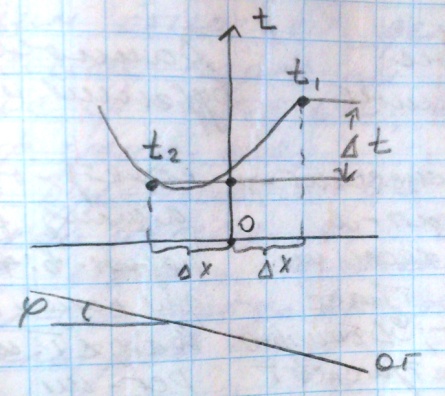 t
t₁
t₂
Δ t
0
Δx Δx
φ
ОГ